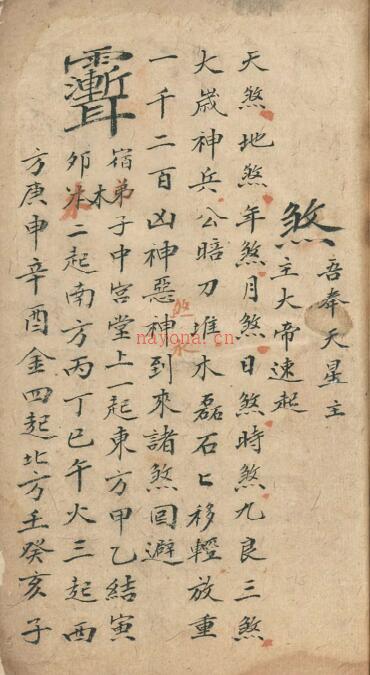 吾奉天星主
煞主大帝速起
天煞地煞年煞月煞日煞時煞九良三煞
大歲神兵公暗刀堆木磊石匕移輕放重
一千二百凶神惡神到來諸煞回避
宿弟子中宮堂上一起東方甲乙結寅
卯木二起南方丙丁巳午火三起西
方庚申辛酉金四起北方壬癸亥子
煞
nayona.cn